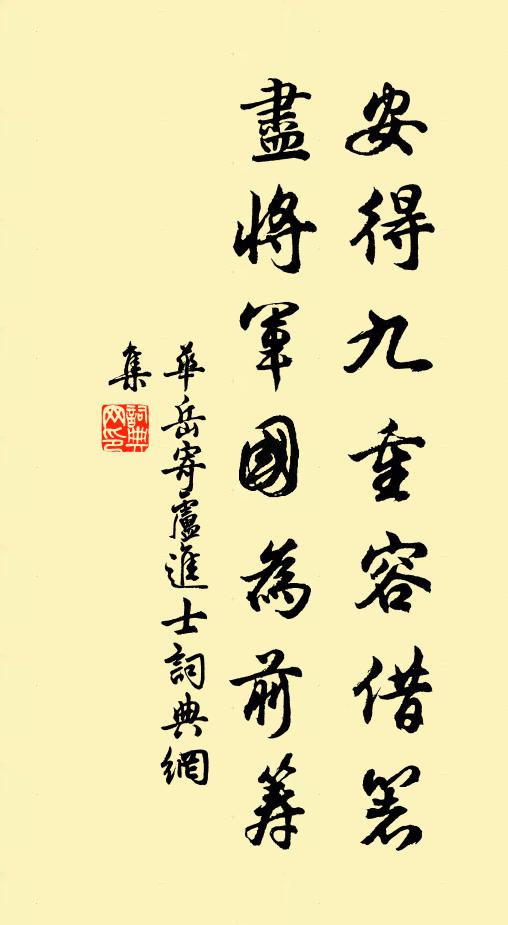 安得九重容借箸
盡將軍國為前籌
華岳寄盧進士詞典網
集
詞典
网印